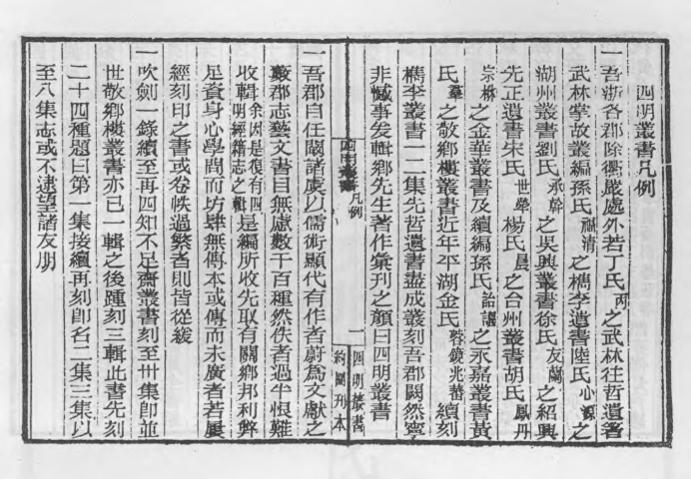 四明叢書凡例
一吾浙各郡除衢嚴處外若丁氏丙之武林往哲遺著
武林掌故叢編孫氏福清之檇李遺書陸氏心源之
湖州叢書劉氏承幹之吳興叢書徐氏友蘭之紹興
先正遺書宋氏世犖楊氏晨之台州叢書胡氏鳳丹
宗楙之金華叢書及續編孫氏詒讓之永嘉叢書黃
氏羣之敬鄉樓叢書近年平湖金氏蓉鏡兆蕃續刻
檇李叢書一二集先哲遺書盡成叢刻吾郡闕然寧
非憾事爰輯鄉先生著作彙刊之顏曰四明叢書
四明叢書
凡例
一
四明叢書
約園刊本
一吾郡自任闞諸虞以儒術顯代有作者蔚爲文獻之
藪郡志藝文書目無慮數千百種然佚者過半恨難
收輯余因是復有四明經籍志之輯是編所收先取有關鄉邦利弊
足資身心學問而坊肆無傳本或傳而未廣者若屢
經刻印之書或卷帙過繁者則皆從緩
一吹劍一錄續至再四知不足齋叢書刻至卅集卽並
世敬鄉樓叢書亦已一輯之後踵刻三輯此書先刻
二十四種題曰第一集接續再刻卽名二集三集以
至八集志或不逮望諸友朋